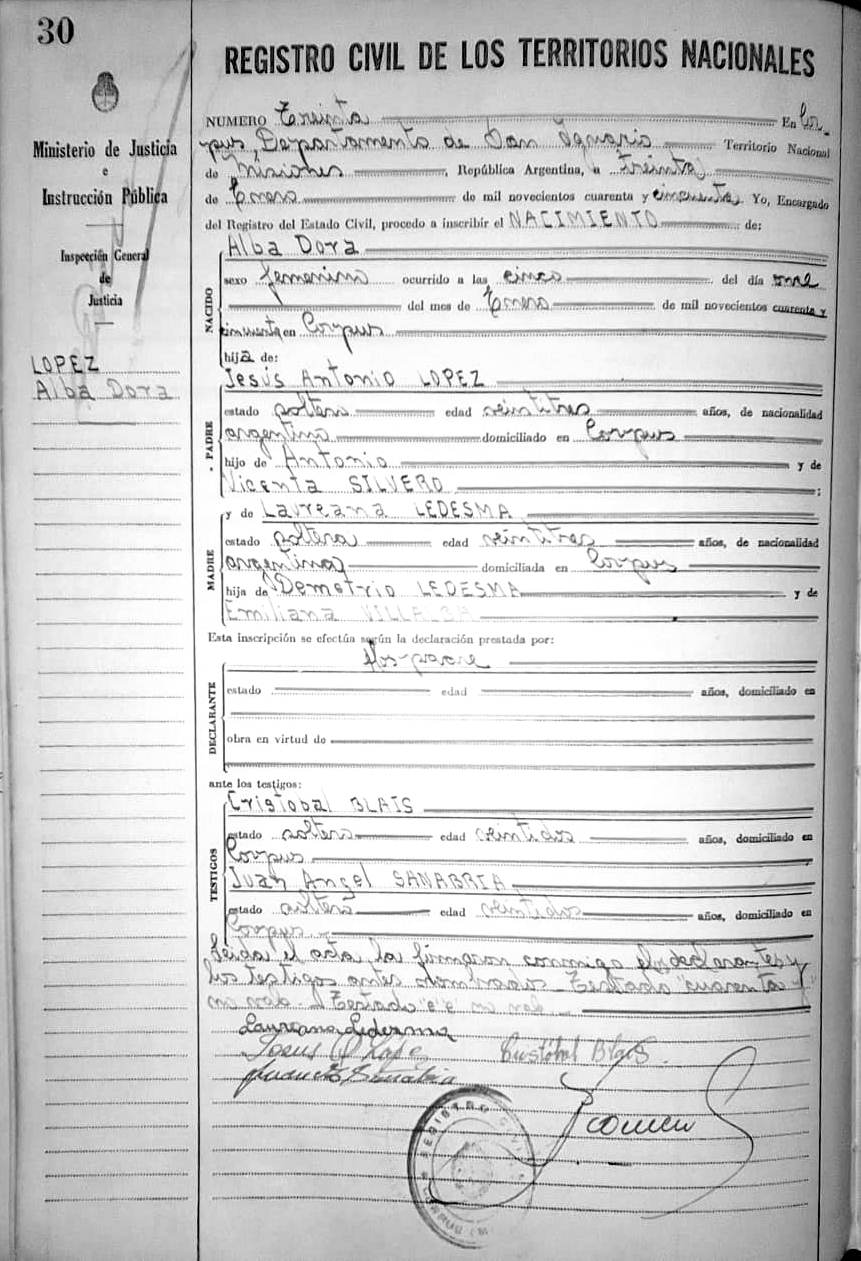 30
REGISTRO CIVIL DE LOS TERRITORIOS NACIONALES
Ministerio de Justicia
e
Instrucción Pública
Inspección General
de
Justicia
LOPEZ
Alba Dora
NUMERO Treinta En Cor-
pus, Departamento de San Ignacio Territorio Nacional
de Misiones, República Argentina, a Treinta
de Enero de mil novecientos cuarenta y cincuenta Yo, Encargado
del Registro del Estado Civil, procedo a inscribir el NACIMIENTO de:
NACIDO
Alba Dora
sexo femenino ocurrido a las cinco del día once
del mes de Enero de mil novecientos cuarenta y
cincuenta en Corpus
hija de:
PADRE
Jesús Antonio LOPEZ
estado soltero edad veintitres años, de nacionalidad
argentino domiciliado en Corpus
hijo de Antonio y de
Vicenta SILVERO ;
MADRE
y de Laureana LEDESMA
estado soltera edad veintitres años, de nacionalidad
argentina domiciliada en Corpus
hija de Demetrio LEDESMA y de
Emiliana VILLALBA
Esta inscripción se efectúa según la declaración prestada por:
DECLARANTE
los padre
estado edad años, domiciliado en
obra en virtud de
ante los testigos:
TESTIGOS
Cristobal BLAIS
estado soltero edad veintidos años, domiciliado en
Corpus
Juan Angel SANABRIA
estado soltero edad veintidos años, domiciliado en
Corpus
Leida el acta la firmaron conmigo declarantes y
los testigos antes nombrados - Testado "cuarenta y"
no vale - Testado "e" "e" no vale
Laureana Ledesma
Jesus A Lopez Cristóbal Blais.
Juan A Sanabria
REGISTRO CIVIL